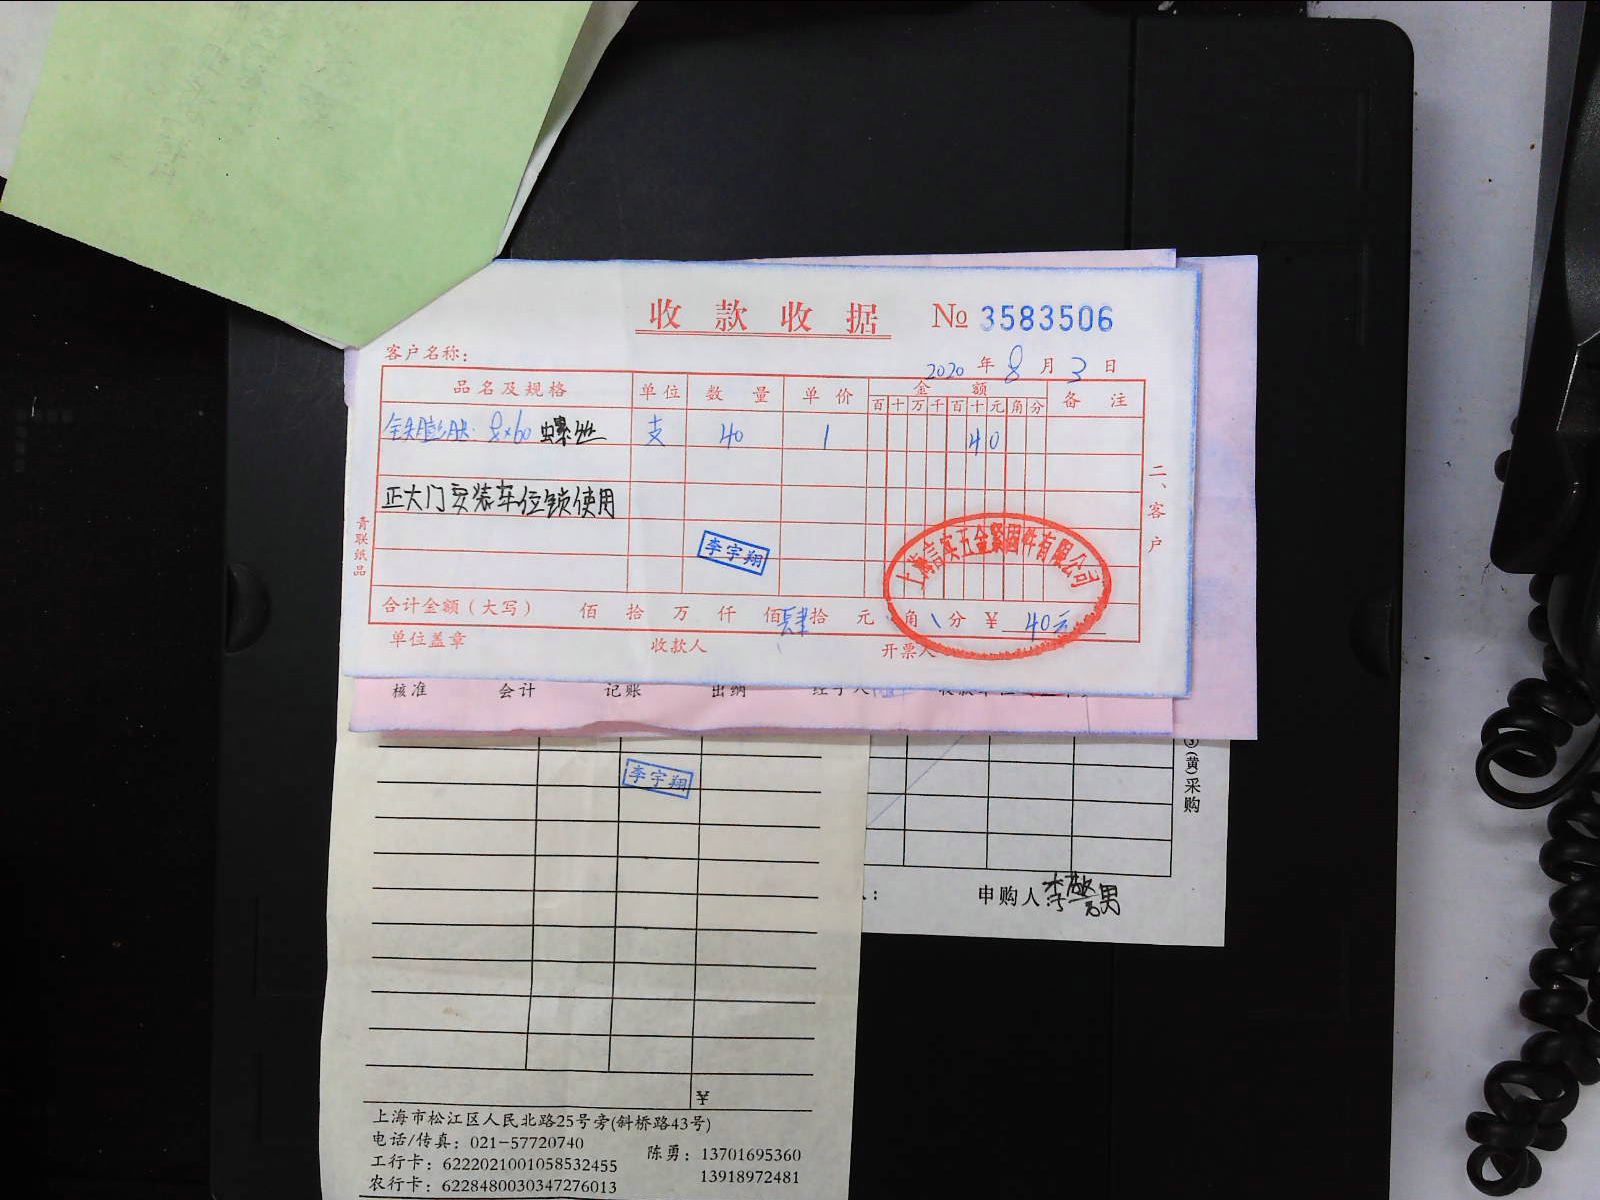 收款收据 № 3583506
客户名称：
2020 年 8 月 3 日
品名及规格 单位 数量 单价 金额 备注
百 十 万 千 百 十 元 角 分
铁膨胀 8×60 螺丝 支 40 1 40
正大门安装车位锁使用
李宇翔
合计金额（大写） 佰 拾 万 仟 佰 肆拾 元 角 分 ¥ 40元
单位盖章 收款人 开票人
二、客户
青联纸品
五金紧固件有限公司
核准 会计 记账 出纳
李宇翔
③(黄)采购
申购人 李 男
¥
上海市松江区人民北路25号旁(斜桥路43号)
电话/传真：021-57720740
陈勇：13701695360
工行卡：6222021001058532455
13918972481
农行卡：6228480030347276013